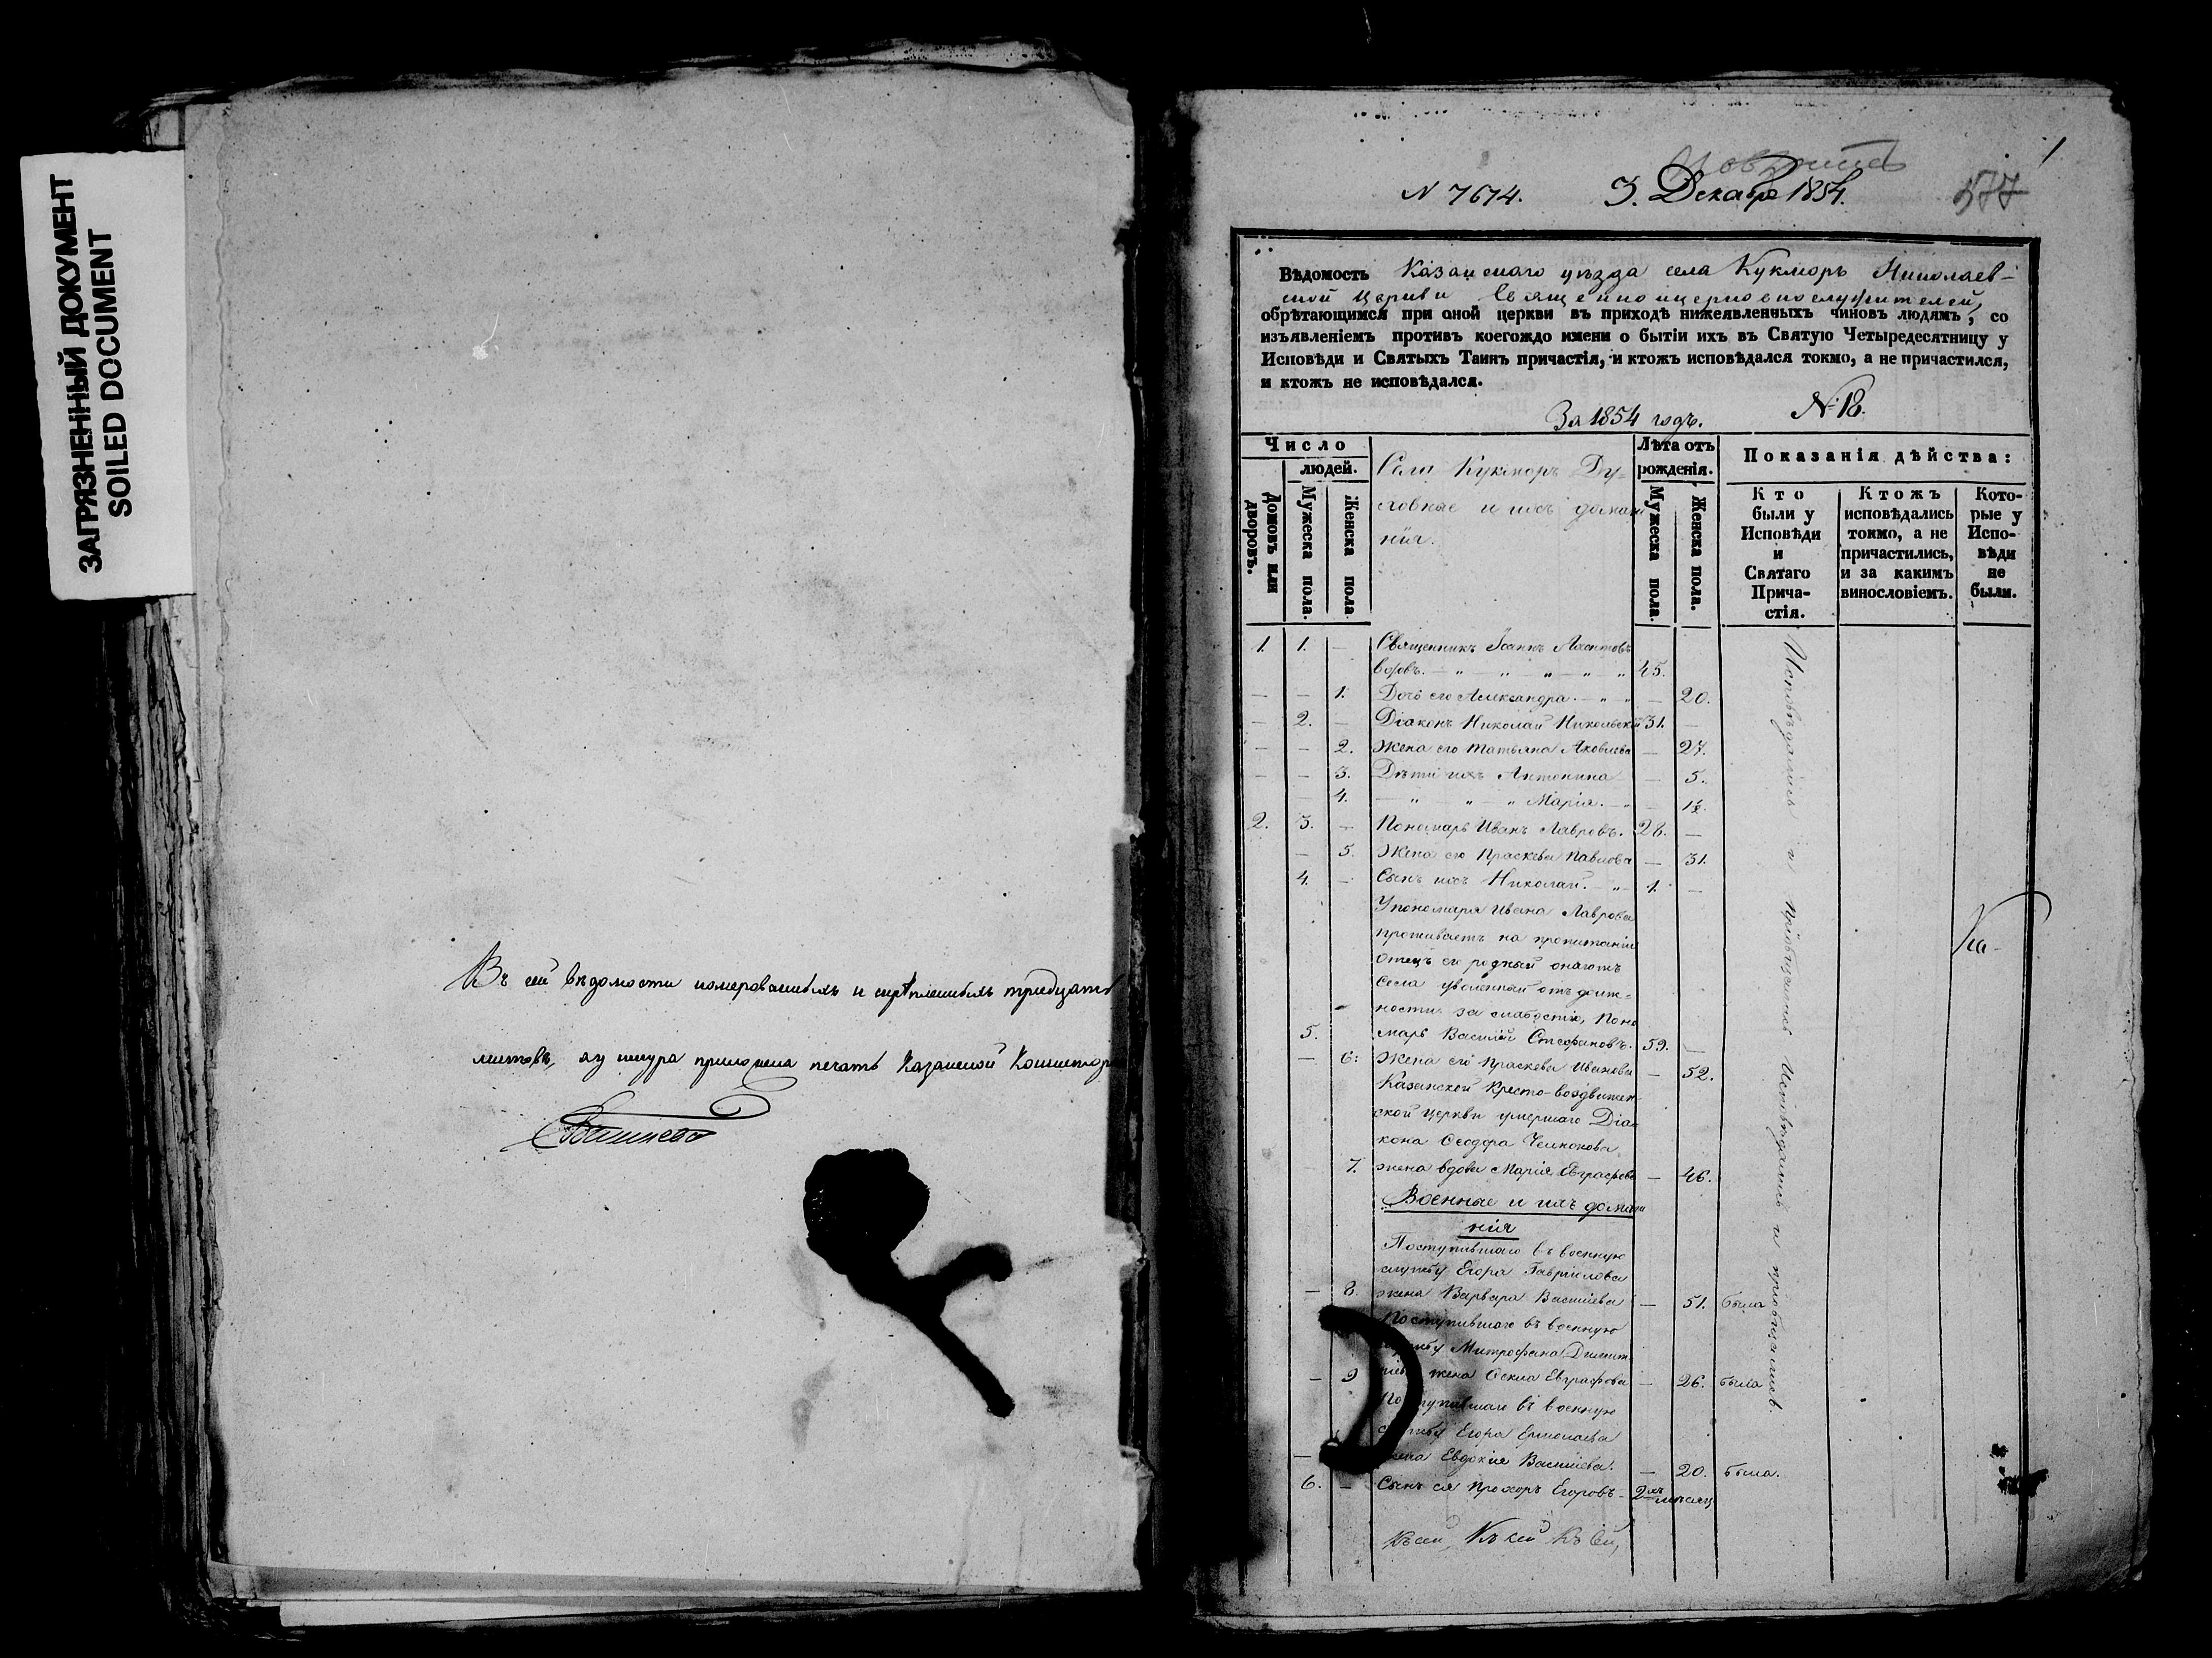 ЗАГРЯЗНЕННЫЙ ДОКУМЕНТ
SOILED DOCUMENT
Въ сей вѣдомости номерованныхъ и скрѣпленныхъ тридцать
листовъ, ку шнура приложена печать Казанской Консистор
1
N 7674. 3. Декабря 1854. 577
Вѣдомость Казанскаго уѣзда села Кукморъ Николаев-
ской церкви Священноицерковнослужителей,
обрѣтающимся при оной церкви въ приходѣ нижеявленныхъ чиновъ людямъ, со
изъявленіемъ противъ коегождо имени о бытіи ихъ въ Святую Четыредесятницу у
Исповѣди и Святыхъ Таинъ причастія, и ктожъ исповѣдался токмо, а не причастился,
и ктожъ не исповѣдался.
За 1854 годъ. №18.
Число
людей.
Домовъ или дворовъ.
Мужеска пола.
Женска пола
Села Кукморъ Ду-
ховные и ихъ домаш
нія.
Лѣта отъ
рожденія.
Мужеска пола.
Женска пола.
Показанія дѣйства:
Кто
были у
Исповѣди
и
Святаго
Прича-
стія.
Ктожъ
исповѣдались
токмо, а не
причастились,
и за какимъ
винословіемъ.
Кото-
рые у
Испо-
вѣди
не
были.
1. 1. — Священникъ Іоаннъ
45.
— — 1. Дочь его Александра. — " " — 20.
— 2. — Діаконъ Николай Никольскій 31. —
— — 2. Жена его Татьяна Яковлева — 27.
— — 3. Дѣти ихъ Антонина — 5.
— 4. — " — " — " Марія. — " — 1½.
2. 3. — Пономарь Иванъ Лавровъ. 28. —
— 5. Жена его Праскева Павлова — 31.
4. — Сынъ ихъ Николай. — " — 1. —
У пономаря Ивана Лаврова
проживаетъ на пропитаніи
отецъ его родный онагожъ
села уволенный отъ долж-
ности за слабостію, Поно
5. марь Василій Стефановъ. 59. —
— 6. Жена его Праскева Иванова — 52.
Казанской Кресто-воздвижен
ской церкви умершаго Діа-
кона Ѳеодора Челнокова
7. жена вдова Марія Евграфова — 46.
Военные и ихъ домаш
нія
Поступившаго въ военную
службу Егора Гаврилова
— 8. жена Варвара Васильева — 51. была
Поступившаго въ военную
службу Митрофана Димит
— 9 жена Ѳекла Евграфова — 26. была
Поступившаго въ военную
службу Егора Ермолаева
— жена Евдокія Васильева. — 20. была.
6. — Сынъ ея Прохоръ Егоровъ — 2хъ мѣсяц
Исповѣдались и пріобщались Исповѣдались и пріобщались.
Ка-
Къ сей, Къ сей Къ сей,